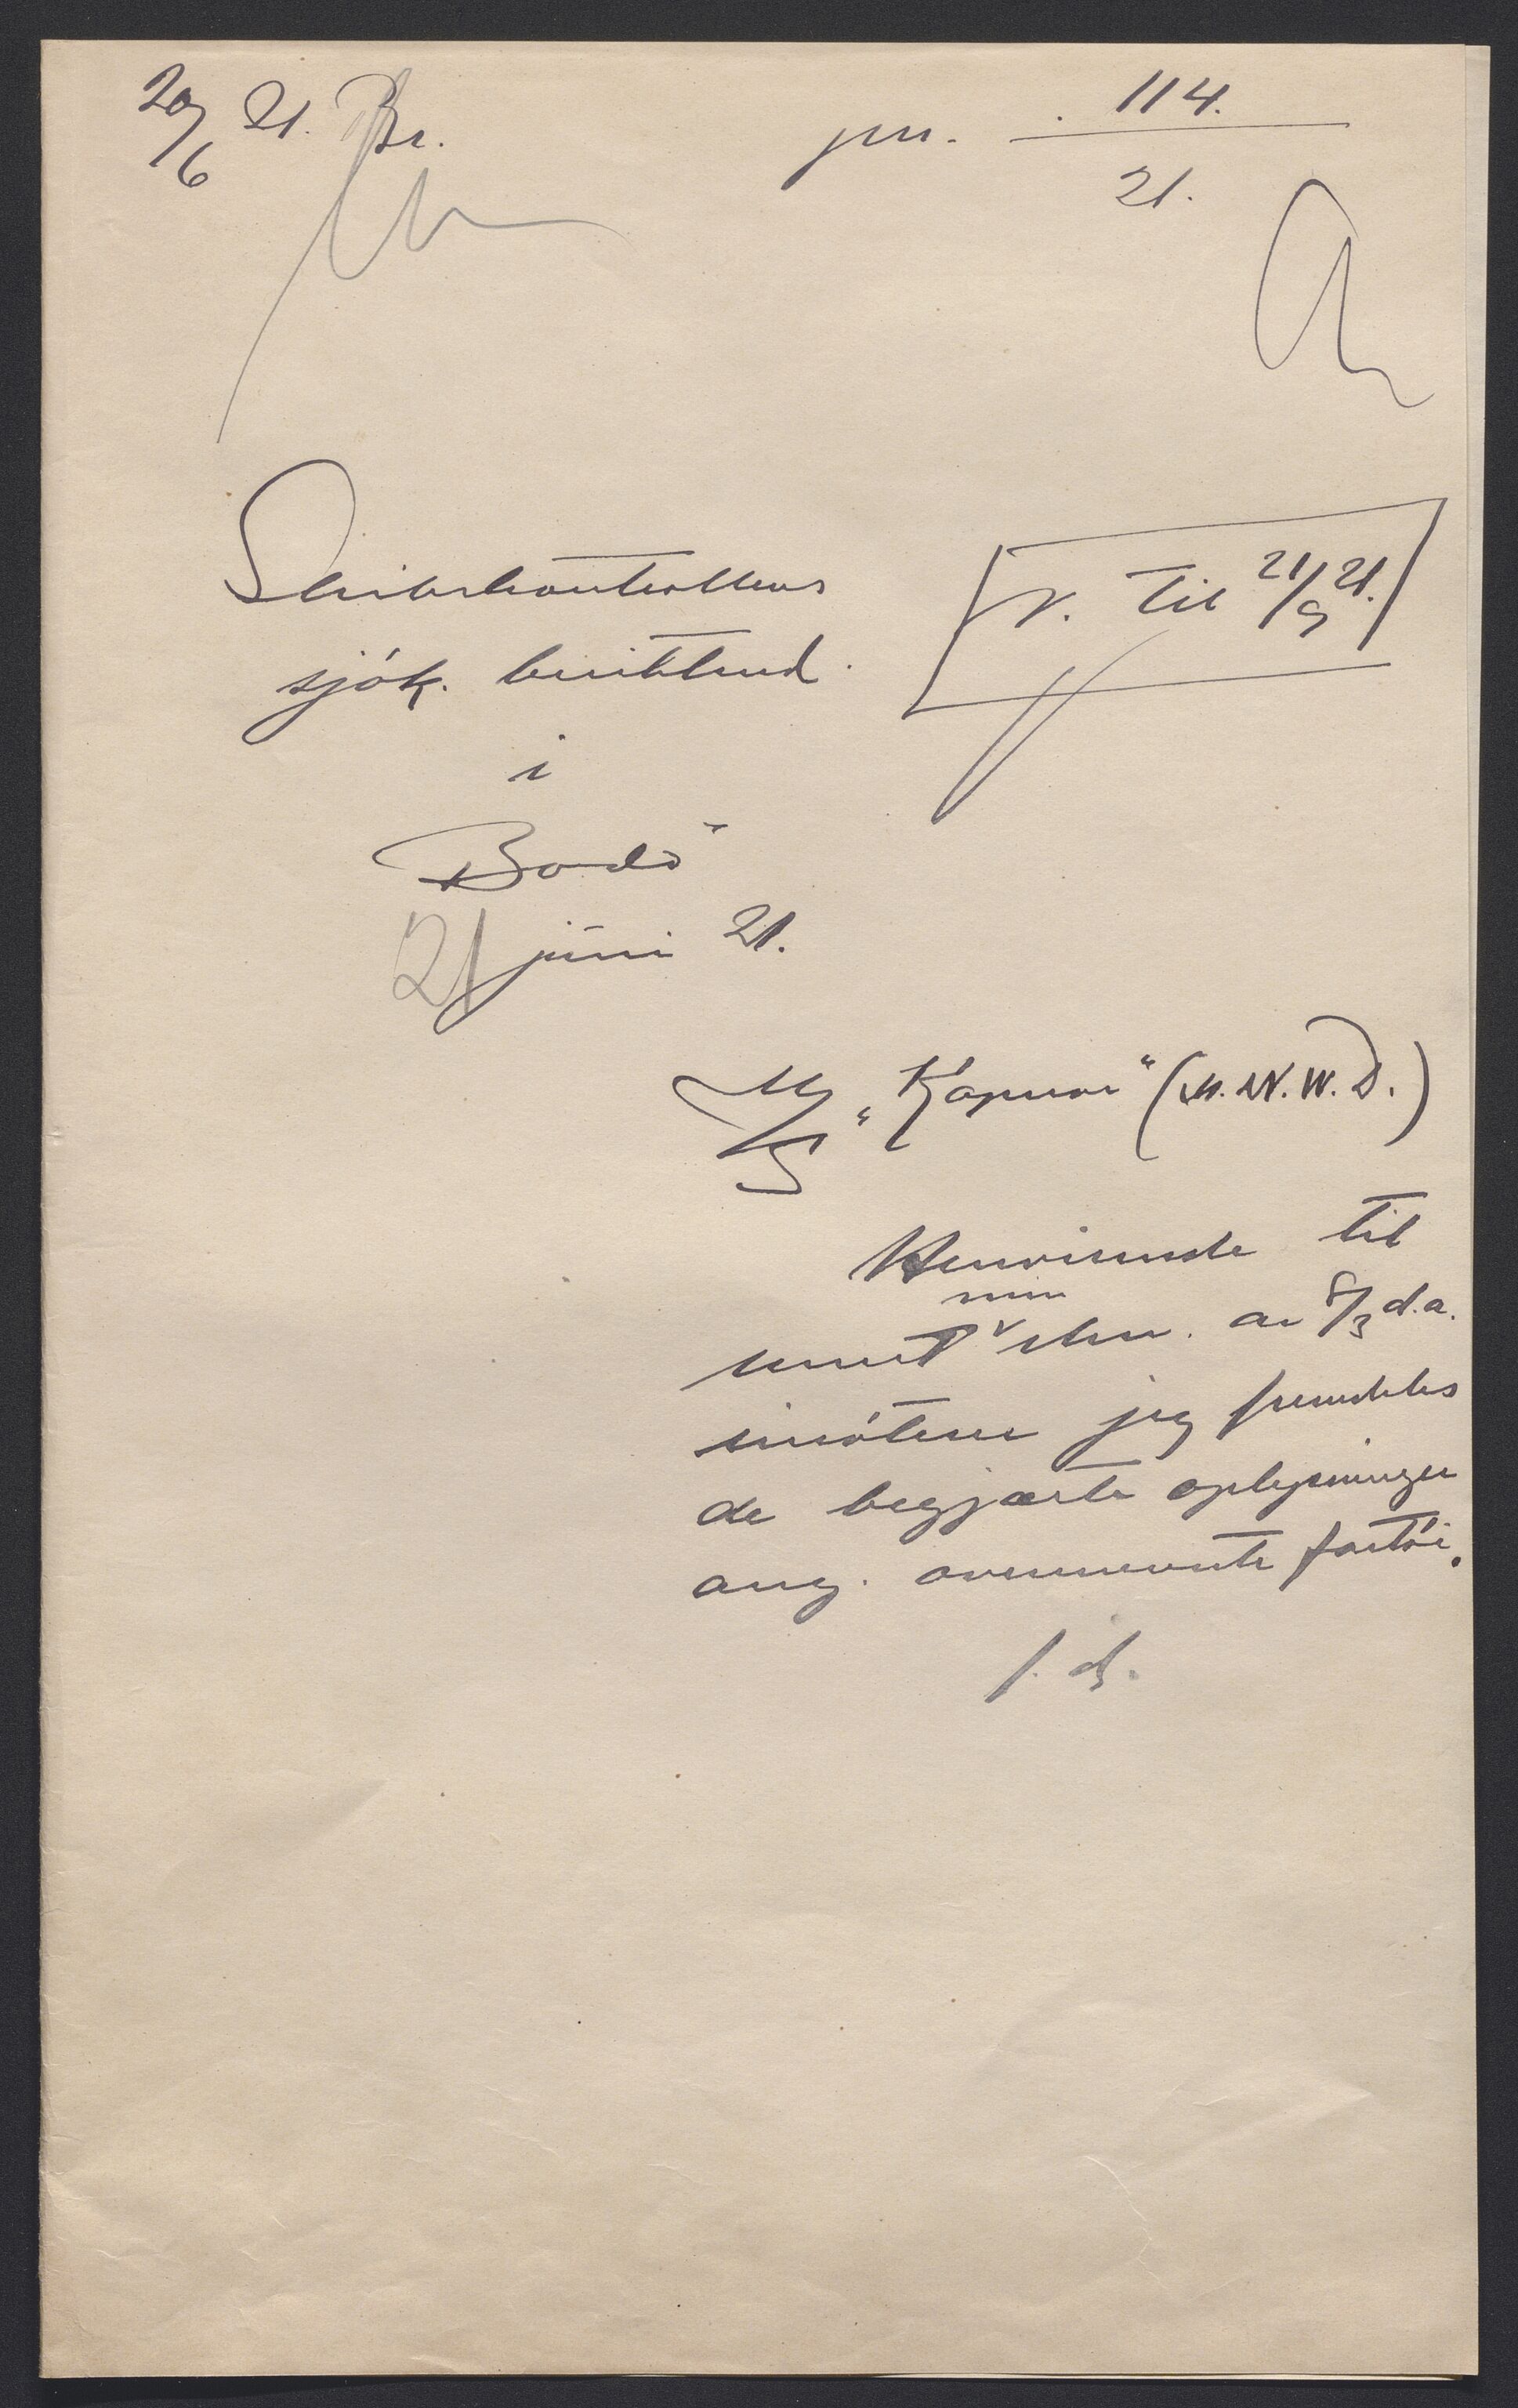 20/6 21. Br.
jnr. 114.
21.
Skibskontrollens
sjók. besiktmd.
i
Bodö
21 juni 21.
V. til 21/9 21.
M/S "Kapnor" (M.N.W.D.)
Henvisende til
min
skr. av 8/3 d.a.
imóteser jeg fremdeles
de begjærte oplysninger
ang. ovennevnte fartöi.
f. d.